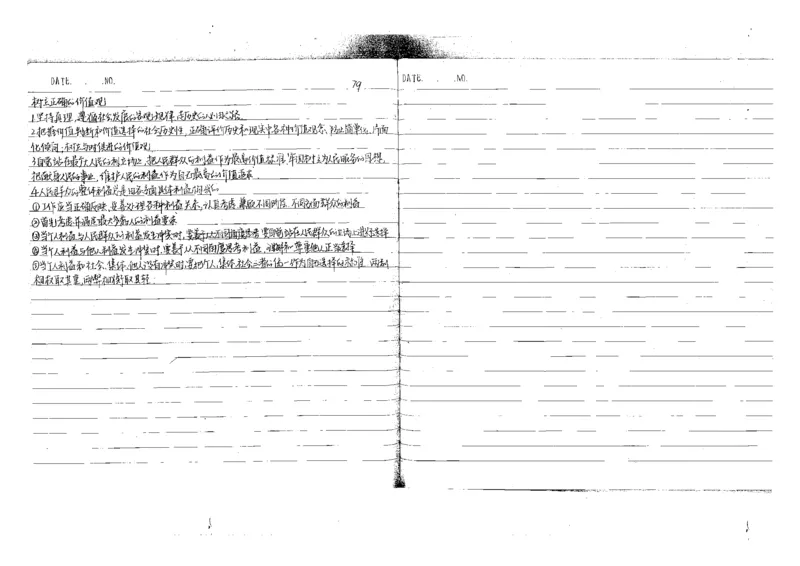 DATE. . .NO.
79
DATE. . .NO.
树立正确的价值观
1.坚持真理,遵循社会发展的客观规律,走历史的必由之路
2.把握价值判断和价值选择的社会历史性,正确评价历史和现实中各种价值观念,防止简单化、片面
化倾向,树立与时俱进的价值观
3.自觉站在最广大人民的利益立场上,把人民群众的利益作为最高价值标准,牢固树立为人民服务的思想,
把献身人民的事业,维护人民的利益作为自己最高的价值追求
4.人民群众的整体利益总是由各方面具体利益构成的
①工作应当正确反映,妥善处理各种利益关系,认真考虑、兼顾不同阶层、不同方面群众的利益
②首先考虑并满足最大多数人的利益要求
③当个人利益与人民群众的利益发生冲突时,要善于从不同角度思考,要自觉站在人民群众的立场上进行选择
④当个人利益与他人利益发生冲突时,要善于从不同角度思考利益,理解和尊重他人正当选择
⑤当个人利益和社会、集体、他人没有冲突时,要把个人、集体、社会三者的统一作为自己选择的标准,两利
相权取其重,两弊相衡取其轻